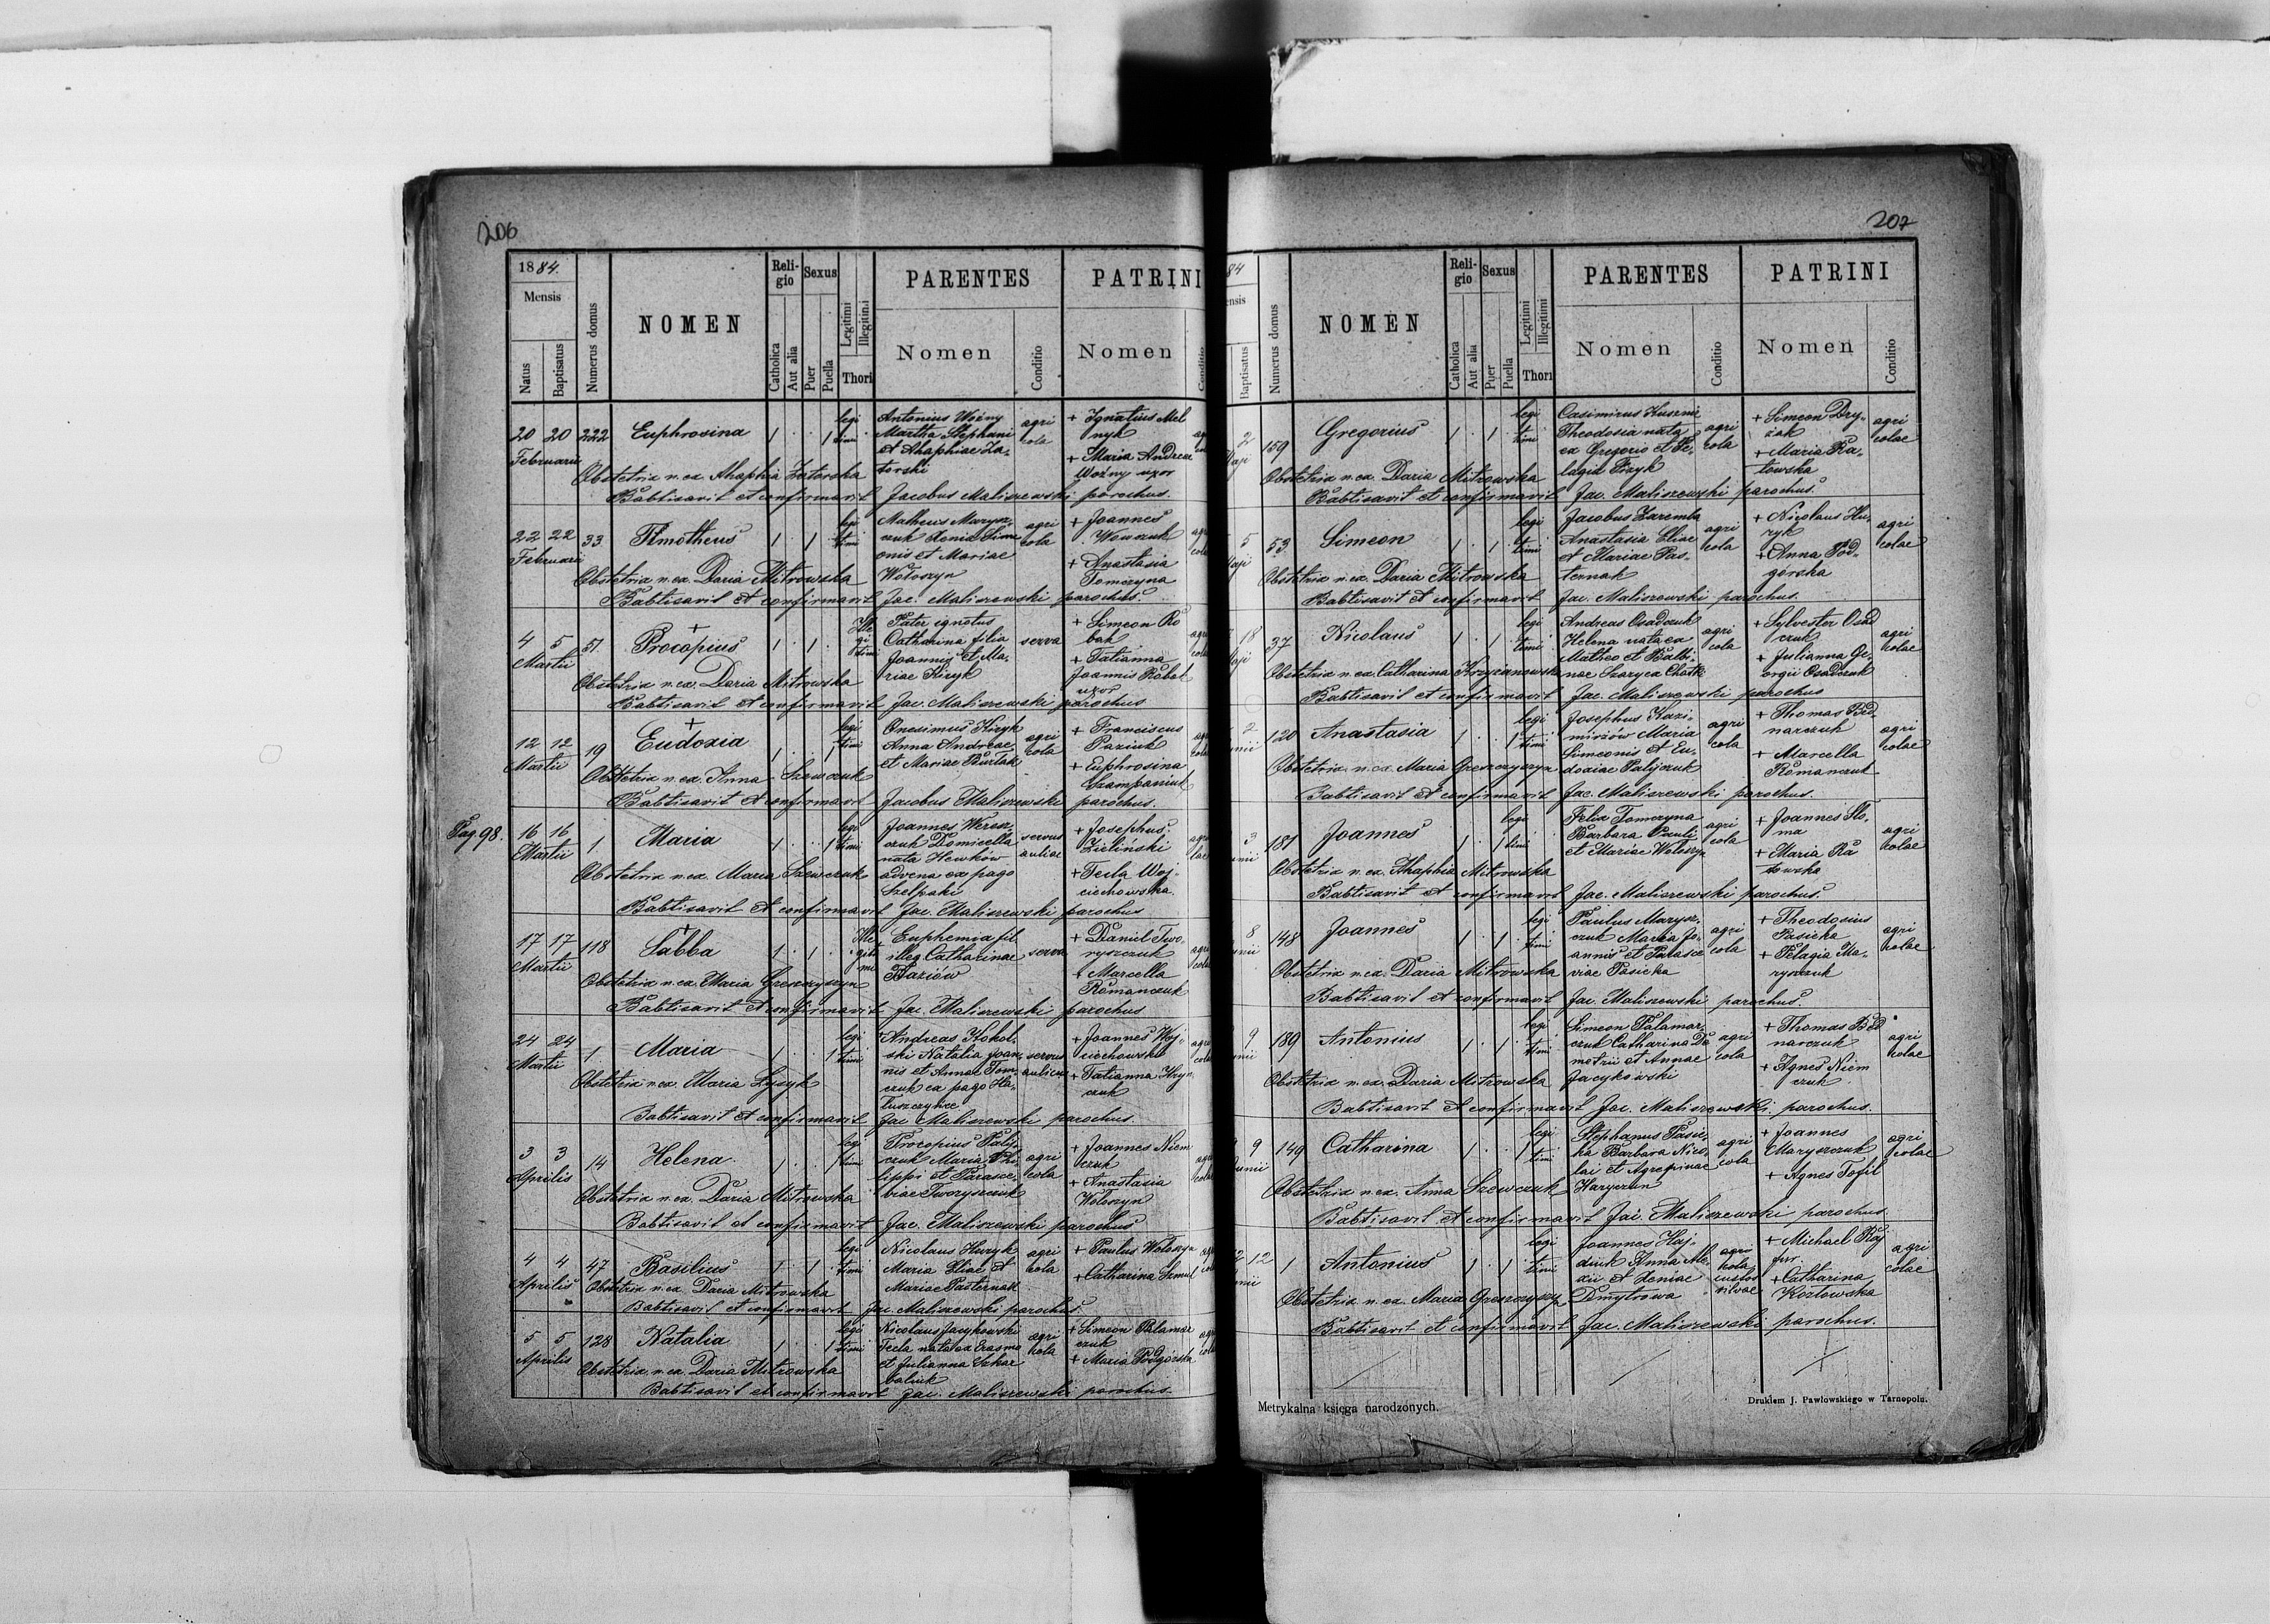 206
18 84.
Mensis
Natus
Baptisatus
Numerus domus
NOMEN
Religio
Catholica
Aut alia
Sexus
Puer
Puella
Legitimi
Illegitimi
Thori
PARENTES
Nomen
Conditio
PATRINI
Nomen
20 20 222 Euphrosina 1 . . 1 legi
timi
Februarii
Antonius Woźny
Martha Stephani
et Ahaphiae Za-
torski
agri
cola
+ Ignatius Mel
nyk
+ Maria Andreae
Woźny uxor
Obstetrix n. ex. Ahaphia Zatorska
Babtisavit et confirmavit Jacobus Maliszewski parochus.
22 22 33 Timotheus 1 . 1 . legi
timi
Februarii
Matheus Marysz-
czuk Xenia Sime
onis et Mariae
Wołoszyn
agri
cola
+ Joannes
Wowczuk
+ Anastasia
Tomczyna
Obstetrix n. ex. Daria Mitrowska
Babtisavit et confirmavit Jac. Maliszewski parochus.
4 5 51. Procopius 1 . 1 . Ille
gi
timi
Martii
Pater ignotus
Catharina filia
Joannis et Ma-
riae Hryk
serva
+ Simeon Ro
bak
+ Tatianna
Joannis Robak
uxor
Obstetrix n. ex. Daria Mitrowska
Babtisavit et confirmavit Jac. Maliszewski parochus
12 12 19 Eudoxia 1 . . 1 legi
timi
Martii
Onesimus Hryk
Anna Andreae
et Mariae Burłak
agri
cola
+ Franciscus
Paziuk
+ Euphrosina
Szampaniuk
Obstetrix n. ex. Anna Szewczuk
Babtisavit et confirmavit Jacobus Maliszewski parochus.
Pag. 98.
16 16 1. Maria 1 . . 1 legi
timi
Martii
Joannes Weresz-
czuk Domicella
nata Hewków
advena ex pago
Szelpaki
servus
aulicae
+ Josephus
Zieliński
+ Tecla Woj-
ciechowska
Obstetrix n. ex. Maria Szewczuk
Babtisavit et confirmavit Jac. Maliszewski parochus
17 17 118 Sabba 1 . 1 . Ille
giti
mi
Martii
+ Euphemia fil
illeg. Catharinae
Baziów
serva
+ Daniel Two-
ryszczuk
+ Marcella
Romanczuk
Obstetrix n. ex. Maria Greszczyszyn
Babtisavit et confirmavit Jac. Maliszewski parochus
24 24 1. Maria 1 . . 1 legi
timi
Martii
Andreas Kokol-
ski Natalia Joan-
nis et Annae Tom-
czuk ex pago Ha-
łuszczyńce
servus
aulicus
+ Joannes Woj-
ciechowski
+ Tatianna Hry-
czuk
Obstetrix n. ex. Maria Łysyk
Babtisavit et confirmavit Jac Maliszewski parochus.
3 3 14 Helena 1 . . 1 legi
timi
Aprilis
Procopius Palij-
czuk Maria Phi-
lippi et Parasce-
viae Tworyszczuk
agri
cola
+ Joannes Niem
czuk
+ Anastasia
Wołoszyn
Obstetrix n. ex. Daria Mitrowska
Babtisavit et confirmavit Jac. Maliszewski parochus
4 4 47 Basilius 1 . 1 . legi
timi
Aprilis
Nicolaus Huryk
Maria Eliae et
Mariae Pasternak
agri
cola
+ Paulus Wołoszyn
+ Catharina Szmul
Obstetrix n. ex. Daria Mitrowska
Babtisavit et confirmavit Jac. Maliszewski parochus.
5 5 128 Natalia 1 . . 1 legi
timi
Aprilis
Nicolaus Jacykowski
Tecla nata ex Erasmo
et Julianna Szkar
baliuk
agri
cola
+ Simeon Palamar
czuk
+ Maria Podgórska
Obstetrix n. ex. Daria Mitrowska
Babtisavit et confirmavit Jac. Maliszewski parochus.
207
84
Baptisatus
Numerus domus
NOMEN
Religio
Catholica
Aut alia
Sexus
Puer
Puella
Legitimi
Illegitimi
Thori
PARENTES
Nomen
Conditio
PATRINI
Nomen
Conditio
2 159 Gregorius 1 . 1 . legi
timi
Casimirus Kuszni
Theodosia nata
ex Gregorio et Pe-
lagia Pizyk
agri
cola
+ Simeon Dry-
żak
+ Maria Ra-
towska
agri
colae
Obstetrix n. ex. Daria Mitrowska
Babtisavit et confirmavit Jac. Maliszewski parochus.
5 53. Simeon 1 . 1 . legi
timi
Jacobus Zaremba
Anastasia Eliae
et Mariae Pas-
ternak
agri
cola
+ Nicolaus Hu-
ryk
+ Anna Pod-
górska
agri
colae
Obstetrix n. ex. Daria Mitrowska
Babtisavit et confirmavit Jac. Maliszewski parochus.
18 37 Nicolaus 1 . 1 . legi
timi
Andreas Osadczuk
Helena nata ex
Matheo et Balbi-
nae Szary ex Chatk
agri
cola
+ Sylvester Osad
czuk
+ Julianna Ge-
orgii Osadczuk
agri
colae
Obstetrix n. ex. Catharina Krzyżanowska
Babtisavit et confirmavit Jac. Maliszewski parochus
2 120 Anastasia 1 . . 1 legi
timi
Josephus Kazi-
mirzów Maria
Simeonis et Eu-
doxiae Palijczuk
agri
cola
+ Thomas Bed-
narczuk
+ Marcella
Romanczuk
agri
colae
Obstetrix n. ex. Maria Greszczyszyn
Babtisavit et confirmavit Jac. Maliszewski parochus.
3 181 Joannes 1 . 1 legi
timi
Felix Tomczyna
Barbara Pauli
et Mariae Wołoszyn
agri
cola
+ Joannes Sło-
ma
+ Maria Ra
towska
agri
colae
Obstetrix n. ex. Ahaphia Mitrowska
Babtisavit et confirmavit Jac. Maliszewski parochus.
8 148 Joannes 1 . 1 . legi
timi
Paulus Marysz-
czuk Maria Jo-
annis et Parasce
viae Pasieka
agri
cola
+ Theodosius
Pasieka
+ Pelagia Ma-
ryszczuk
agri
colae
Obstetrix n. ex. Daria Mitrowska
Babtisavit et confirmavit Jac. Maliszewski parochus.
9 189 Antonius 1 . 1 . legi
timi
Simeon Palamar-
czuk Catharina De
metrii et Annae
Jacykowski
agri
cola
+ Thomas Bed
narczuk
+ Agnes Niem
czuk
agri
colae
Obstetrix n. ex. Daria Mitrowska
Babtisavit et confirmavit Jac. Maliszewski parochus.
9 149 Catharina 1 . . 1 legi
timi
Stephanus Pasie-
ka Barbara Nico-
lai et Agrepinae
Haryczun
agri
cola
+ Joannes
Maryszczuk
+ Agnes Tofil
agri
colae
Obstetrix n. ex. Anna Szewczuk
Babtisavit et confirmavit Jac. Maliszewski parochus.
12 1 Antonius 1 . 1 . legi
timi
Joannes Haj-
duk Anna Ale-
xii et Xeniae
Dmytrowa
agri
cola
custos
silvae
+ Michael Raj
fur.
+ Catharina
Kozłowska
agri
colae
Obstetrix n. ex. Maria Greszczyszyn
Babtisavit et confirmavit Jac. Maliszewski parochus.
Metrykalna księga narodzonych.
Drukiem J. Pawłowskiego w Tarnopolu.